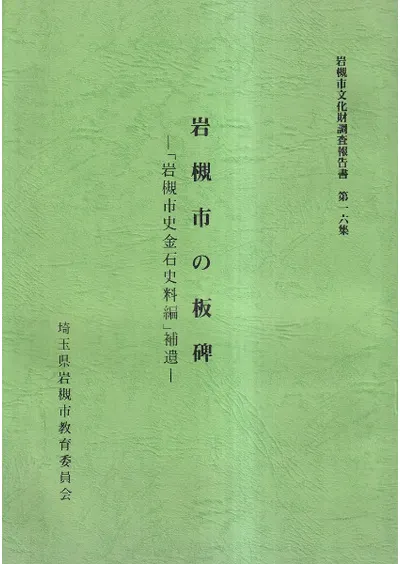 岩槻市文化財調査報告書　第一六集
岩槻市の板碑
―「岩槻市史金石史料編」補遺―
埼玉県岩槻市教育委員会